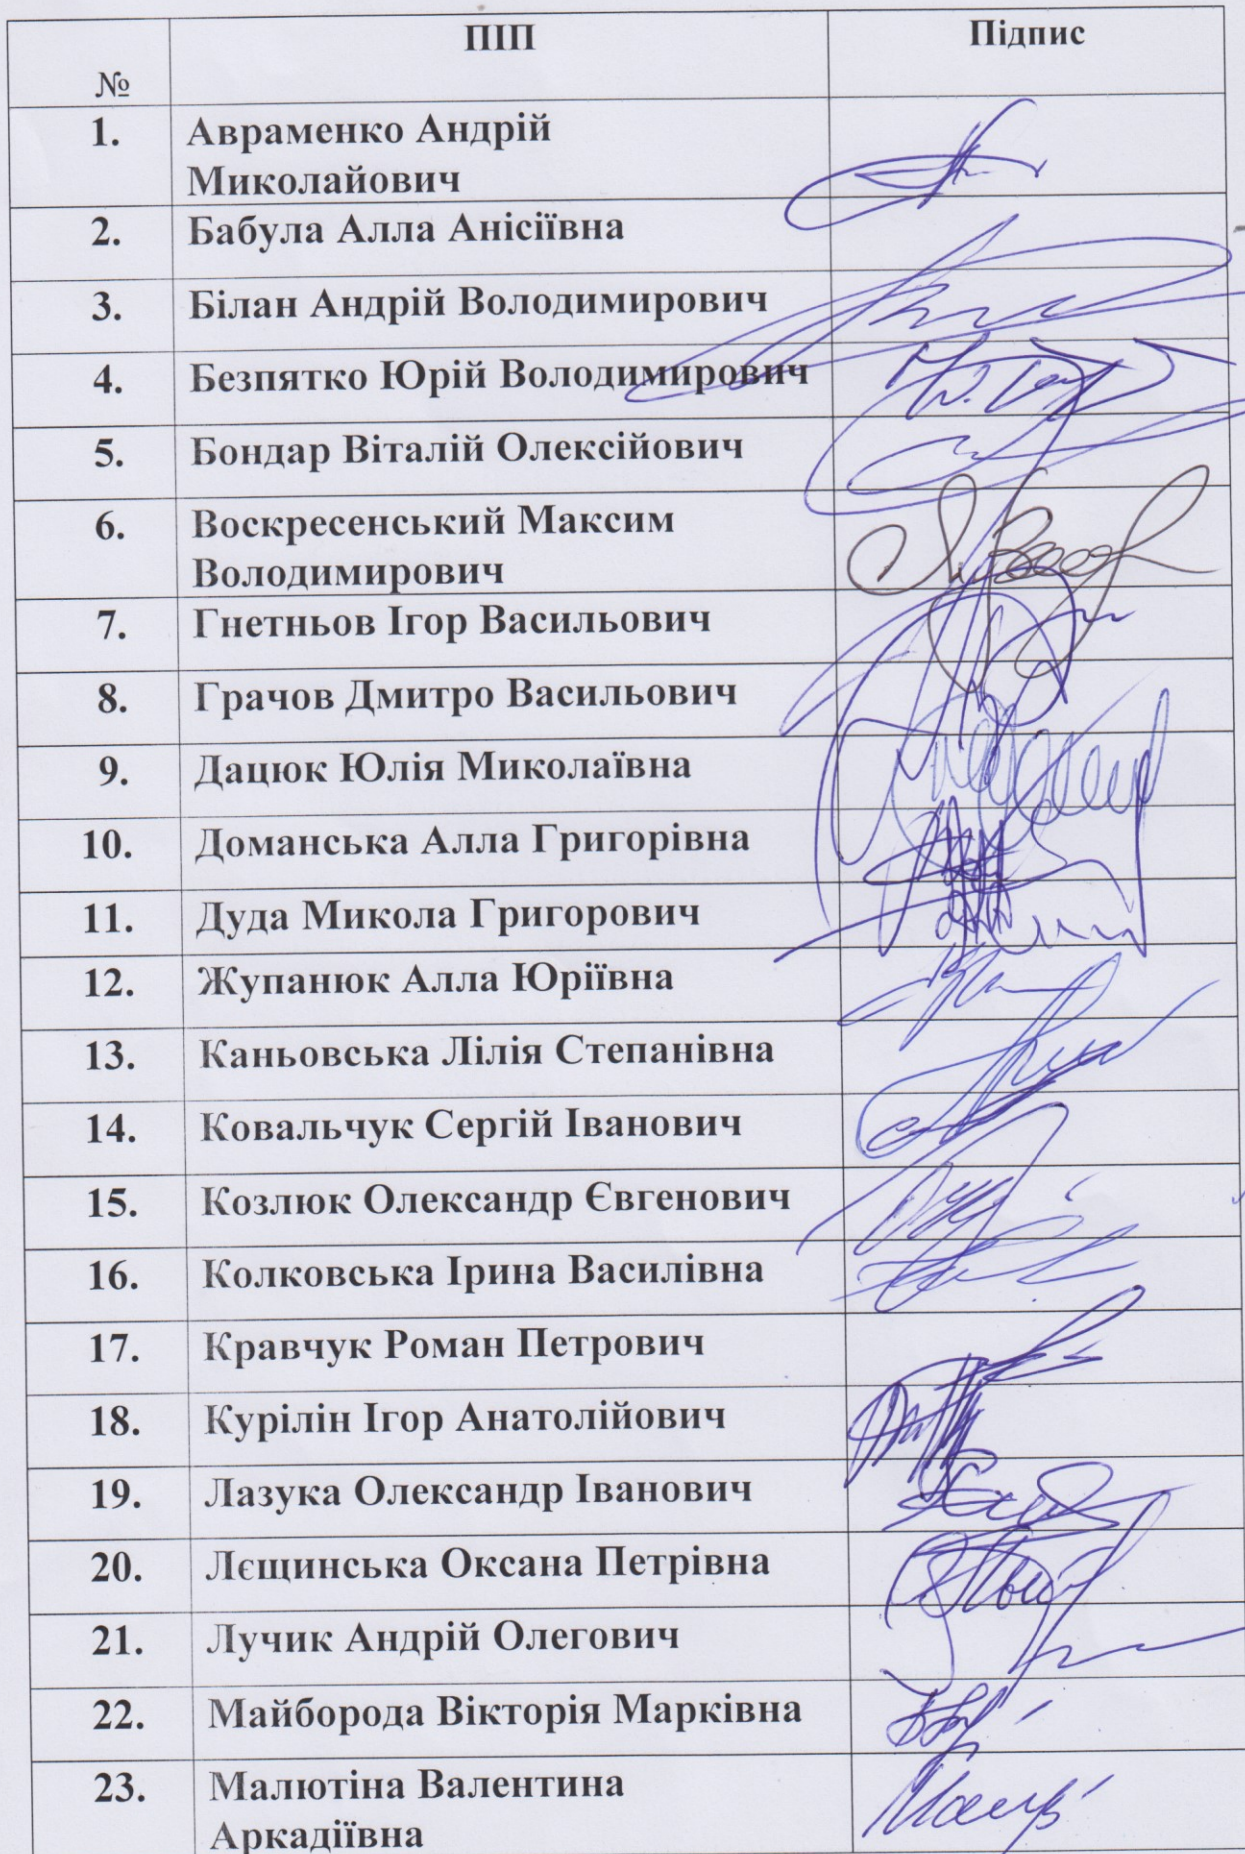 № ПІП Підпис
1. Авраменко Андрій
Миколайович
2. Бабула Алла Анісіївна
3. Білан Андрій Володимирович
4. Безпятко Юрій Володимирович
5. Бондар Віталій Олексійович
6. Воскресенський Максим
Володимирович
7. Гнетньов Ігор Васильович
8. Грачов Дмитро Васильович
9. Дацюк Юлія Миколаївна
10. Доманська Алла Григорівна
11. Дуда Микола Григорович
12. Жупанюк Алла Юріївна
13. Каньовська Лілія Степанівна
14. Ковальчук Сергій Іванович
15. Козлюк Олександр Євгенович
16. Колковська Ірина Василівна
17. Кравчук Роман Петрович
18. Курілін Ігор Анатолійович
19. Лазука Олександр Іванович
20. Лєщинська Оксана Петрівна
21. Лучик Андрій Олегович
22. Майборода Вікторія Марківна
23. Малютіна Валентина
Аркадіївна